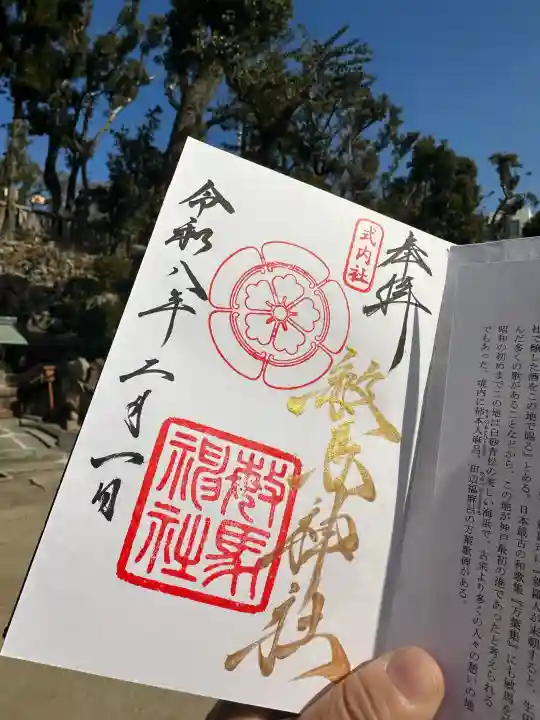 奉拝
式内社
敏馬神社
敏馬神社
令和八年二月一日
社で醸した酒をこの地で賜る』とある。日本最古の和歌集『万葉集』にも敏馬を
んだ多くの歌があることなどから、この地が神戸最初の港であったと考えられる
昭和の初めまでこの地は白砂青松の美しい海浜で、古来より多くの人々の憩いの地
でもあった。境内に柿本人麻呂、田辺福麻呂の万葉歌碑がある。